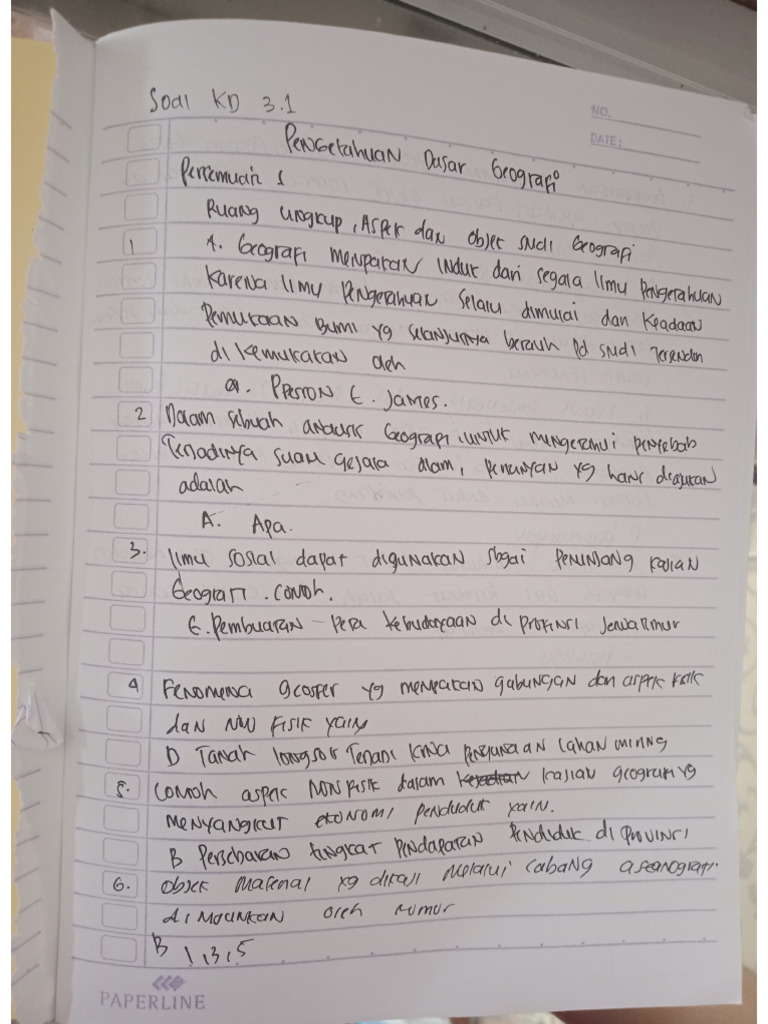 Soal KD 3.1
NO.
DATE:
Pengetahuan Dasar Geografi
Pertemuan 1
Ruang Lingkup, Aspek dan Objek Studi Geografi
1 A. Geografi merupakan induk dari segala ilmu pengetahuan
karena ilmu pengetahuan selalu dimulai dari keadaan
permukaan Bumi yg selanjutnya beralih pd studi tersendiri
di kemukakan oleh
a. Preston E. James.
2 Dalam sebuah analisis Geografi, untuk mengetahui penyebab
Terjadinya suatu gejala alam, pertanyaan yg harus diajukan
adalah
A. Apa.
3. Ilmu sosial dapat digunakan sbgai penunjang kajian
Geografi. Contoh.
E. Pembuatan - peta kebudayaan di Provinsi Jawa Timur
4 Fenomena geosfer yg merupakan gabungan dari aspek fisik
dan non fisik yaitu
D Tanah longsor terjadi karna penggunaan lahan miring
5. Contoh aspek non fisik dalam kajian geografi yg
menyangkut ekonomi penduduk yaitu.
B Persebaran tingkat pendapatan penduduk di provinsi
6. Objek material yg dikaji melalui cabang oseanografi.
di tunjukkan oleh nomor
B 1, 3, 5
PAPERLINE